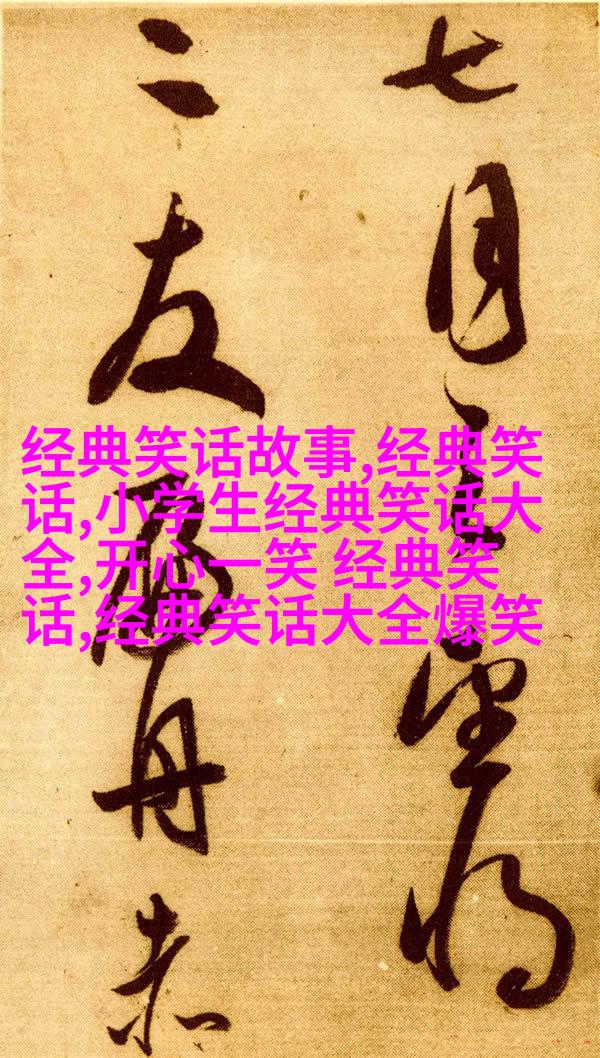 七月望将
二友舟赤
经典笑话故事,经典笑
话,小学生经典笑话大
全,开心一笑 经典笑
话,经典笑话大全爆笑